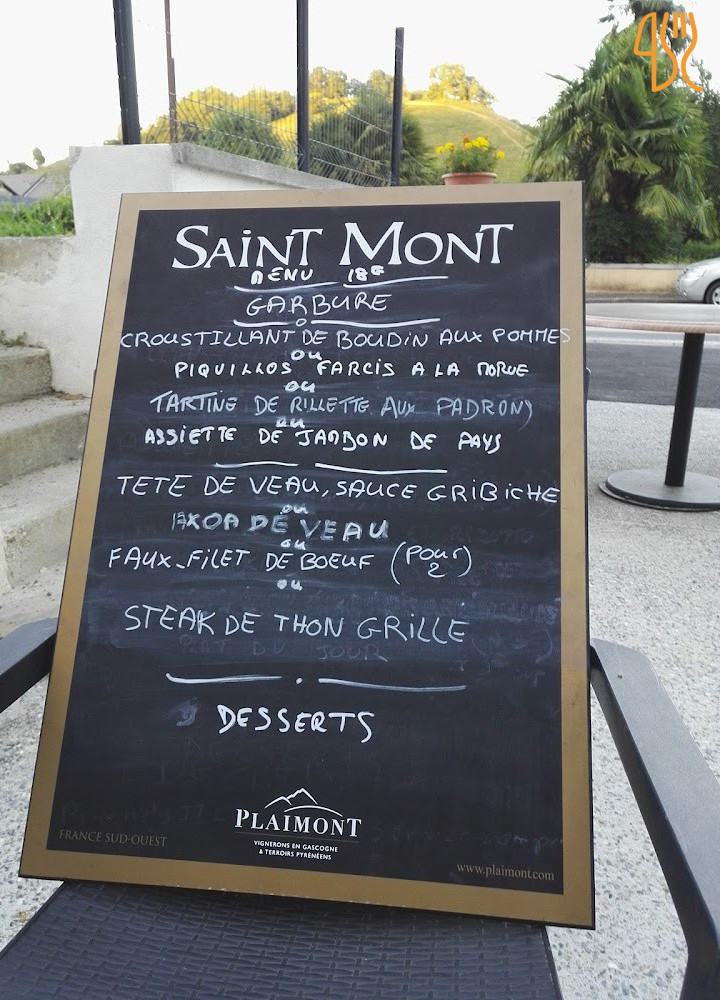 SAINT MONT
MENU 18€
GARBURE
CROUSTILLANT DE BOUDIN AUX POMMES
OU
PIQUILLOS FARCIS A LA MORUE
OU
TARTINE DE RILLETTE AUX PADRONS
OU
ASSIETTE DE JAMBON DE PAYS
TETE DE VEAU, SAUCE GRIBICHE
OU
AXOA DE VEAU
OU
FAUX-FILET DE BOEUF (POUR 2)
OU
STEAK DE THON GRILLE
PLAT DU JOUR
DESSERTS
PLAIMONT
VIGNERONS EN GASCOGNE
& TERROIRS PYRÉNÉENS
FRANCE SUD-OUEST
www.plaimont.com